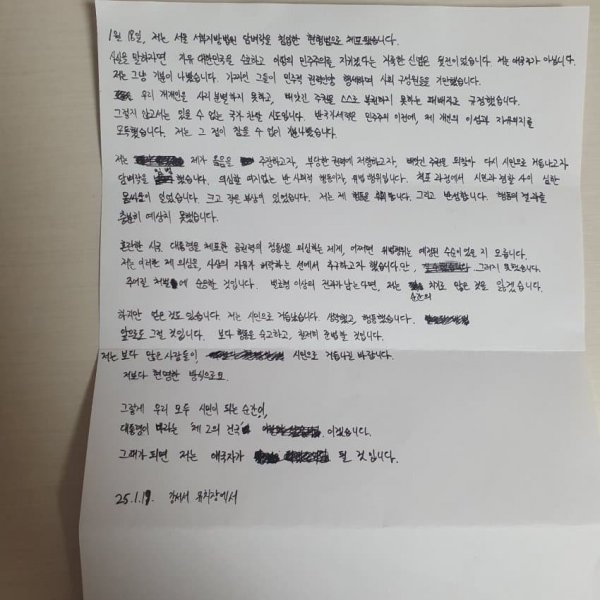 1월 18일, 저는 서울 서부지방법원 담벼락을 월담한 현행범으로 체포됐습니다.
사실을 말하자면 자유 대한민국을 수호하고 이 땅의 민주주의를 지키겠다는 거룩한 신념은 뒷전이었습니다. 저는 애국자가 아닙니다.
저는 그냥 기분이 나빴습니다. 가파른 그들이 민주적 권력인양 행세하며 사회 구성원들을 기만했습니다.
우리 개개인을 사리 분별하지 못하고, 빼앗긴 주권을 스스로 복권하지 못하는 패배자로 규정했습니다.
그렇지 않고서는 있을 수 없는 국가 찬탈 시도입니다. 반국가세력은 민주주의 이전에, 제 개인의 이성과 자유의지를
모독했습니다. 저는 그 점이 참을 수 없이 화났습니다.
저는 제가 옳음을 주장하고자, 부당한 권력에 저항하고자, 빼앗긴 주권을 되찾아 다시 시민으로 거듭나고자
담벼락을 월담 했습니다. 의심할 여지없는 반사회적 행동이자, 위법 행위입니다. 체포 과정에서 시민과 경찰 사이 심한
몸싸움이 있었습니다. 크고 작은 부상이 있었습니다. 저는 제 행동을 후회합니다. 그리고 반성합니다. 행동의 결과를
충분히 예상치 못했습니다.
혼란한 시국, 대통령을 체포한 공권력의 정통성을 의심하는 제게, 어쩌면 위법행위는 예정된 수순이었을 지 모릅니다.
저는 이러한 제 의심을, 사상의 자유가 허락하는 선에서 추구하고자 했습니다만, 그러지 못했습니다.
주어질 처벌에 순응할 것입니다. 벌금형 이상의 전과가 남는다면, 저는 순간의 치기로 많은 것을 잃겠습니다.
하지만 얻은 것도 있습니다. 저는 시민으로 거듭났습니다. 생각했고, 행동했습니다.
앞으로도 그럴 것입니다. 보다 행동을 숙고하고, 철저히 준법할 것입니다.
저는 보다 많은 사람들이, 시민으로 거듭나길 바랍니다.
저보다 현명한 방식으로요.
그렇게 우리 모두 시민이 되는 순간이,
대통령이 바라는 '제 2의 건국' 이겠습니다.
그때가 되면 저는 애국자가 될 것입니다.
25.1.19. 강서서 유치장에서